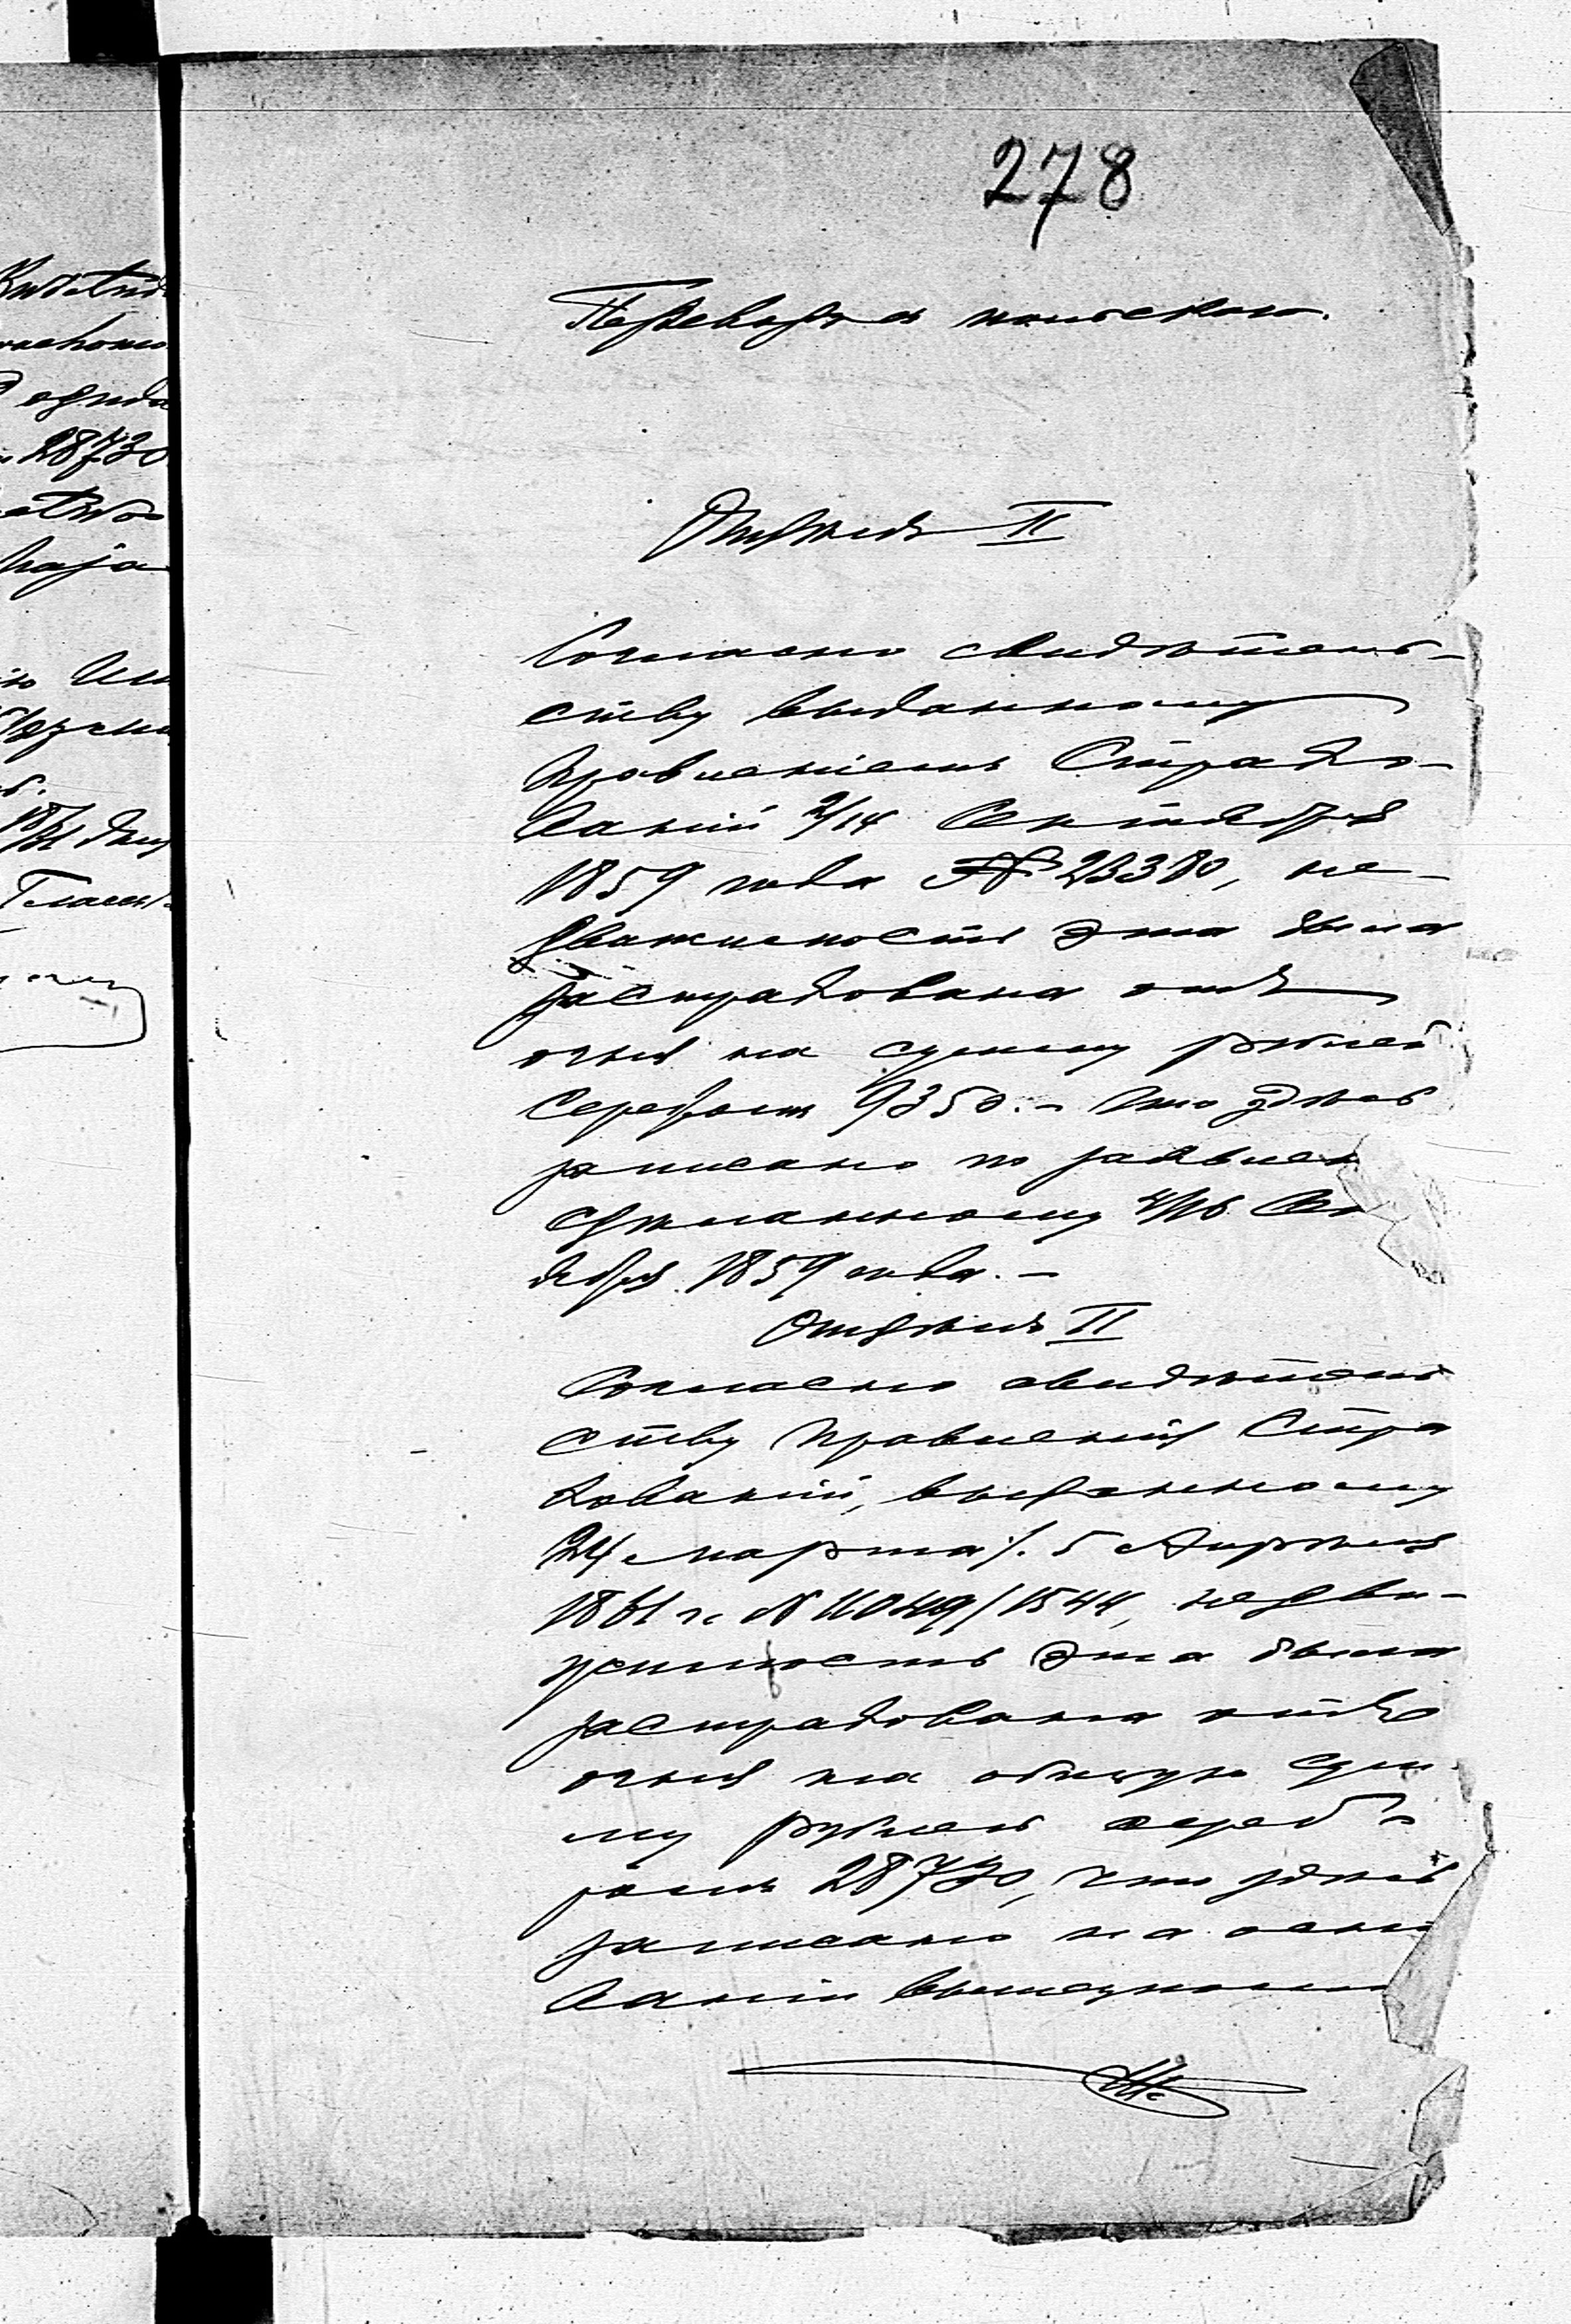 278
Переводъ съ польскаго.
Отдѣлъ II
Согласно свидѣтель-
ству выданному
Правленіемъ Страхо-
ваній 2/14 Сентября
1859 года № 23380, не-
движимость эта была
застрахована отъ
огня на сумму рублей
серебромъ 9350. – Что здѣсь
записано по заявлен
сдѣланному 4/16 Сен
тября 1859 года. –
Отдѣлъ II
Согласно свидѣтель
ству Правленія Стра
хованій, выданному
24 Марта /. 5 Апрѣля
1861 г. № 11049/1544, недви-
жимость эта была
застрахована отъ
огня на общую сум
му рублей сереб
ромъ 28730, что здѣсь
записано на осно
ваніи
28730